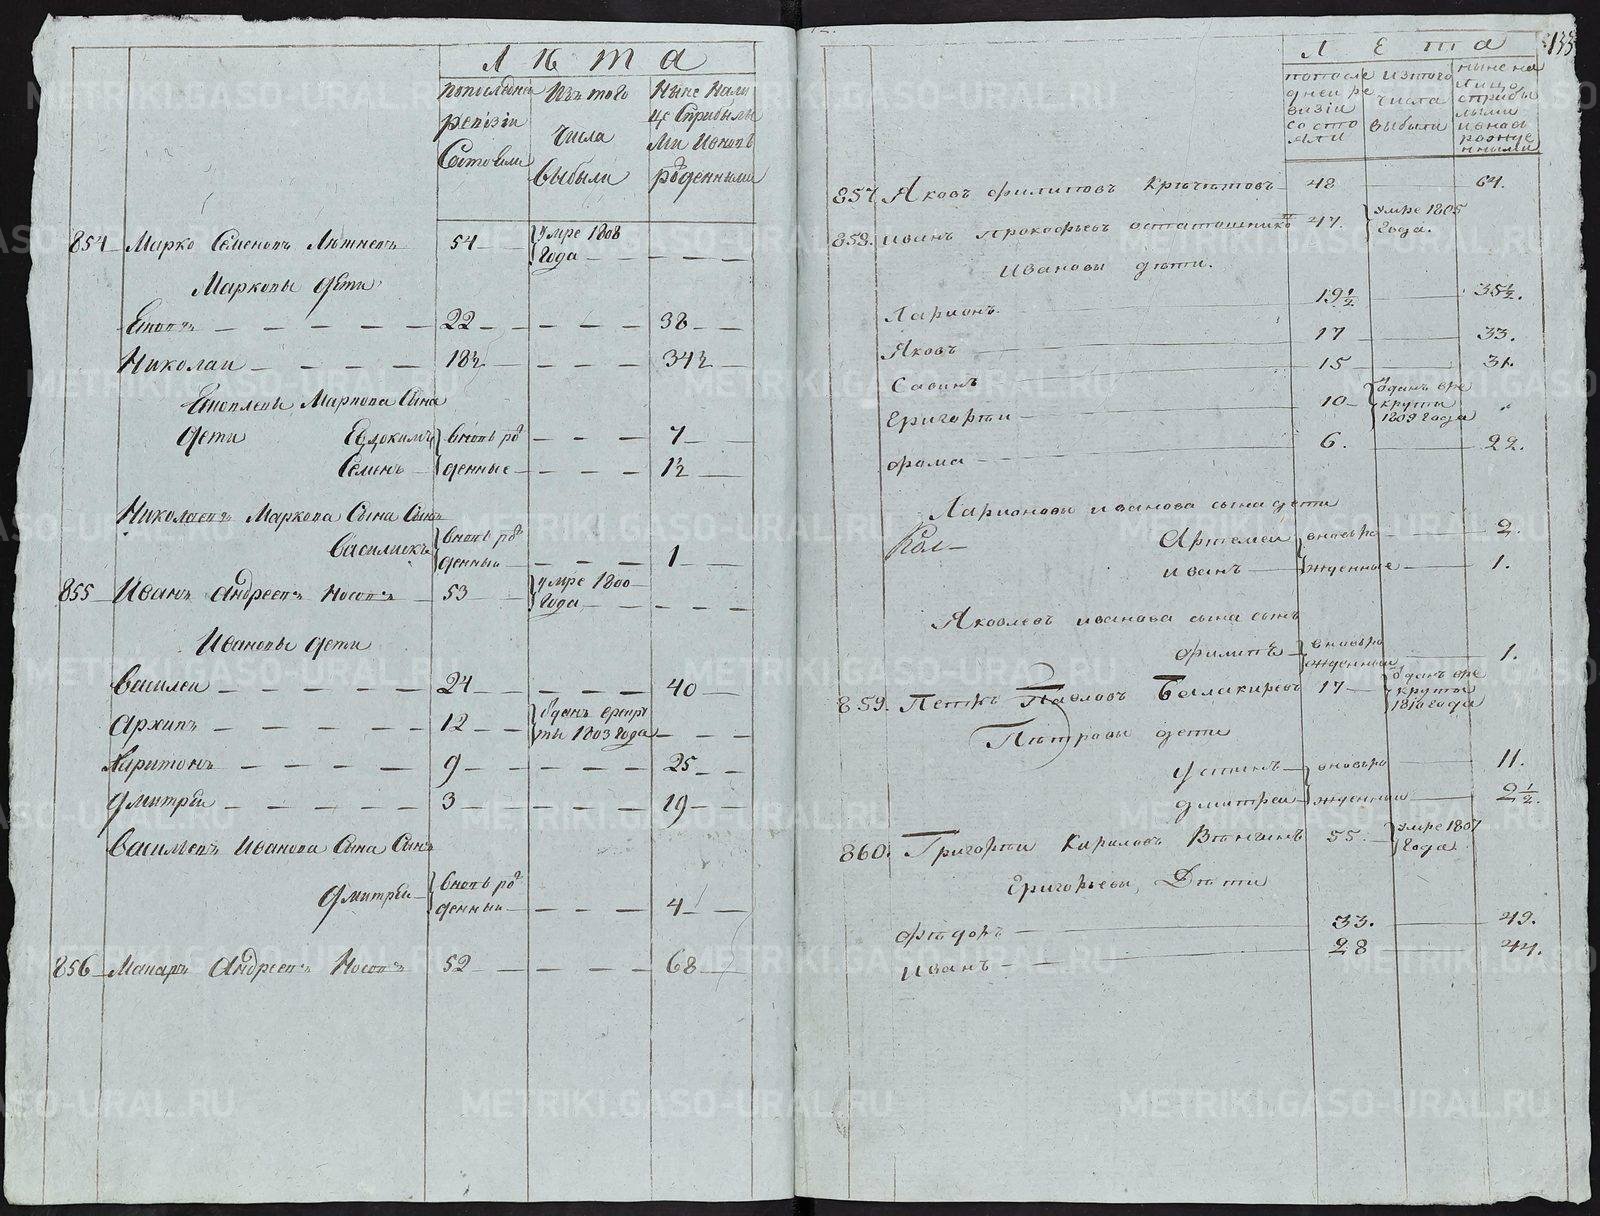 Лѣта
попослѣдней ревизіи Состояли
Изъ того числа выбыли
Ныне Налице Сприбылыми Ивновь рожденными
854 Марко Семеновъ 54 умре 1808 года
Марковы дети
22 38
Николаи 18½ 34½
Маркова Сына
дети Евдокимъ вновь рожденные 7
Семенъ 1½
Николаевъ Маркова Сына Сынъ
вновь рожденныи 1
855 Иванъ Андреевъ Носовъ 53 умре 1800 года
Ивановы дети
Василеи 24 40
Архипъ 12 отданъ врекруты 1803 года
Харитонъ 9 25
Дмитреи 3 19
Васильевъ Иванова Сына Сынъ
Дмитреи вновь рожденныи 4
856 Макаръ Андреевъ Носовъ 52 68
133
Лета
попоследней ревизіи состояли
изтого числа выбыли
ныне на лицо сприбылыми ивновь рожденными
857. Яковъ Филиповъ 48 64.
858. Иванъ Прокофьевъ 47. умре 1805 года.
Ивановы дѣти.
Ларионъ 19½ 35½.
Яковъ 17 33.
Савинъ 15 31.
Григореи 10 отданъ врекруты 1809 года
Фома 6. 22.
Ларионовы иванова сына дети
Артемеи вновьрожденные 2.
иванъ 1.
Яковлевъ иванова сына сынъ
Филипъ вновьрожденныи 1.
859. Петръ Павловъ Балакиревъ 17 отданъ врекруты 1810 года
Петровы дети
Устинъ вновьрожденныи 11.
Дмитреи 2½.
860. Григореи Кириловъ 55 умре 1807 года
Григорьевы Дѣти
Фѣдоръ 33. 49.
Иванъ 28 44.
METRIKI.GASO-URAL.RU